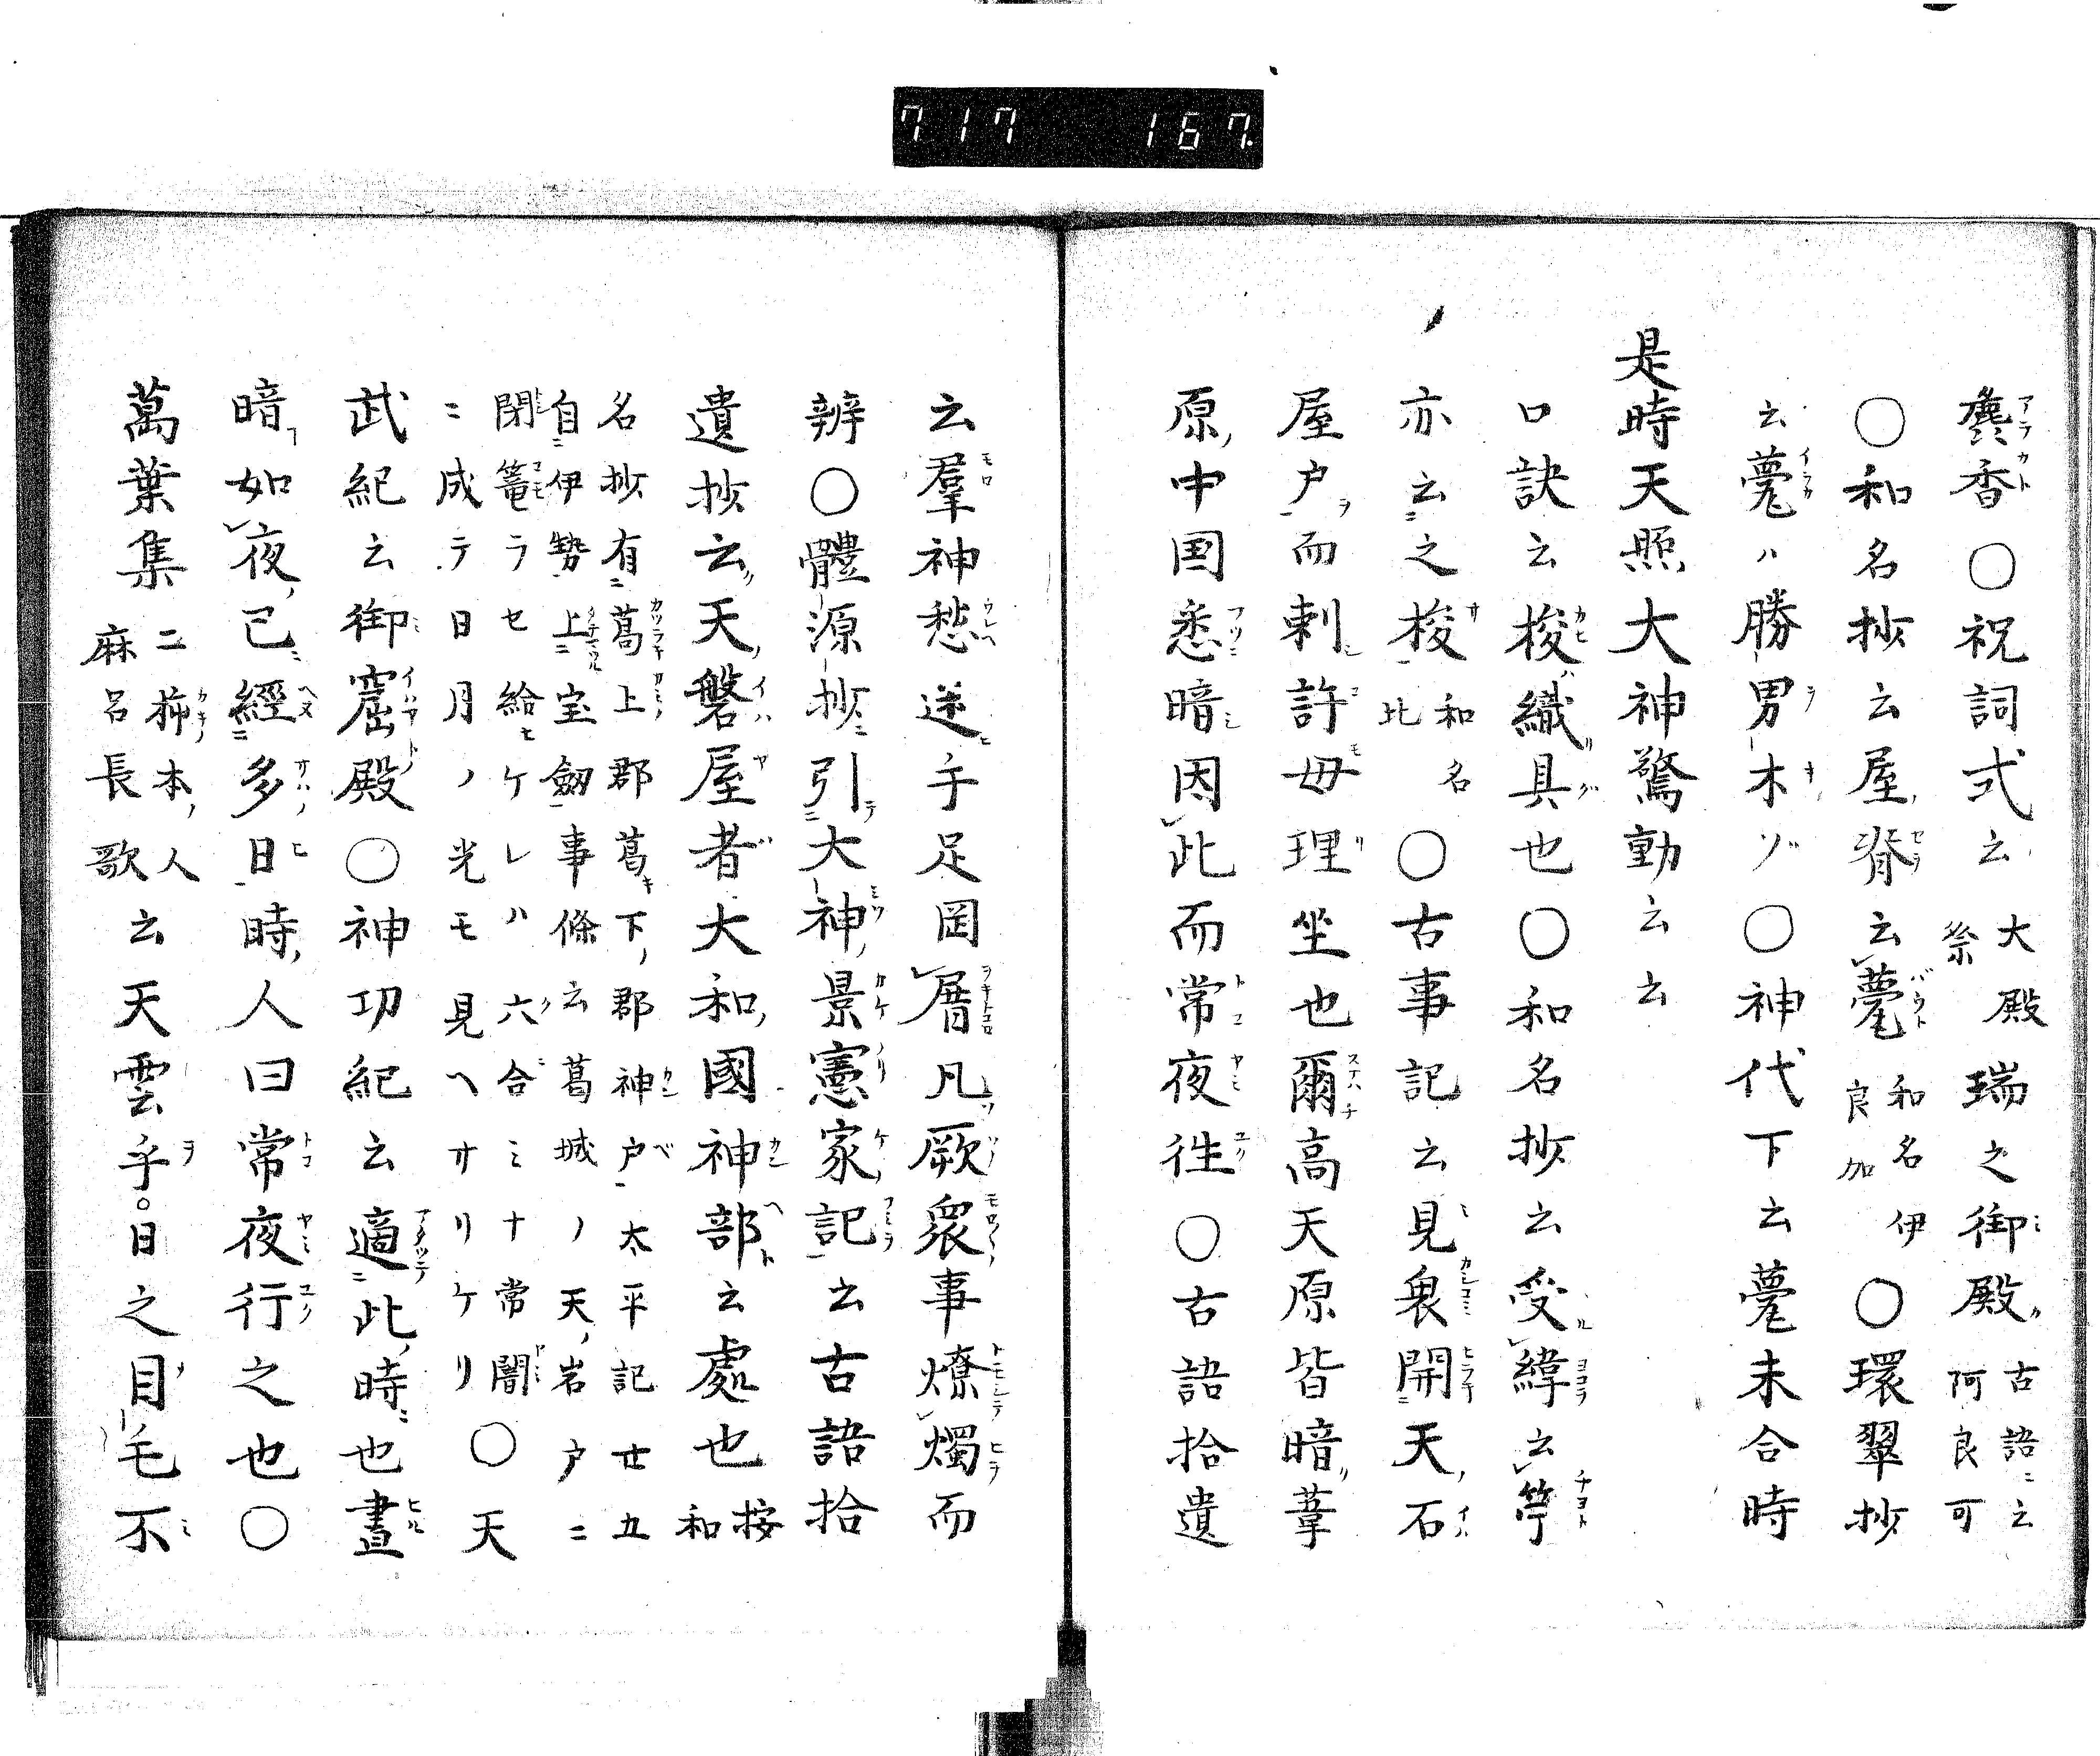 717 167
甍香〇祝詞式云大殿祭瑞之御殿古語ニ云阿良可
〇和名抄云屋脊云甍和名伊良加〇環翠抄
云甍ハ勝男木ゾ〇神代下云甍未合時
是時天照大神驚動云云
口訣云梭織具也〇和名抄云受緯云筟
亦云之梭和名比〇古事記云見畏開天石
屋戸而刺許母理坐也爾高天原皆暗葦
原中国悉暗因此而常夜往〇古語拾遺
云羣神愁迷手足罔厝凡厥衆事燎燭而
辨〇體源抄引大神景憲家記云古語拾
遺抄云天磐屋者大和國神部云處也按和
名抄有葛上郡葛下郡神戸太平記廿五
自伊勢上宝劔事條云葛城ノ天岩戸ニ
閉篭ラセ給ケレハ六合ミナ常闇
ニ成テ日月ノ光モ見ヘサリケリ〇天
武紀云御窟殿〇神功紀云適此時也晝
暗如夜已經多日時人曰常夜行之也〇
萬葉集二柿本人麻呂長歌云天雲乎。日之目毛不